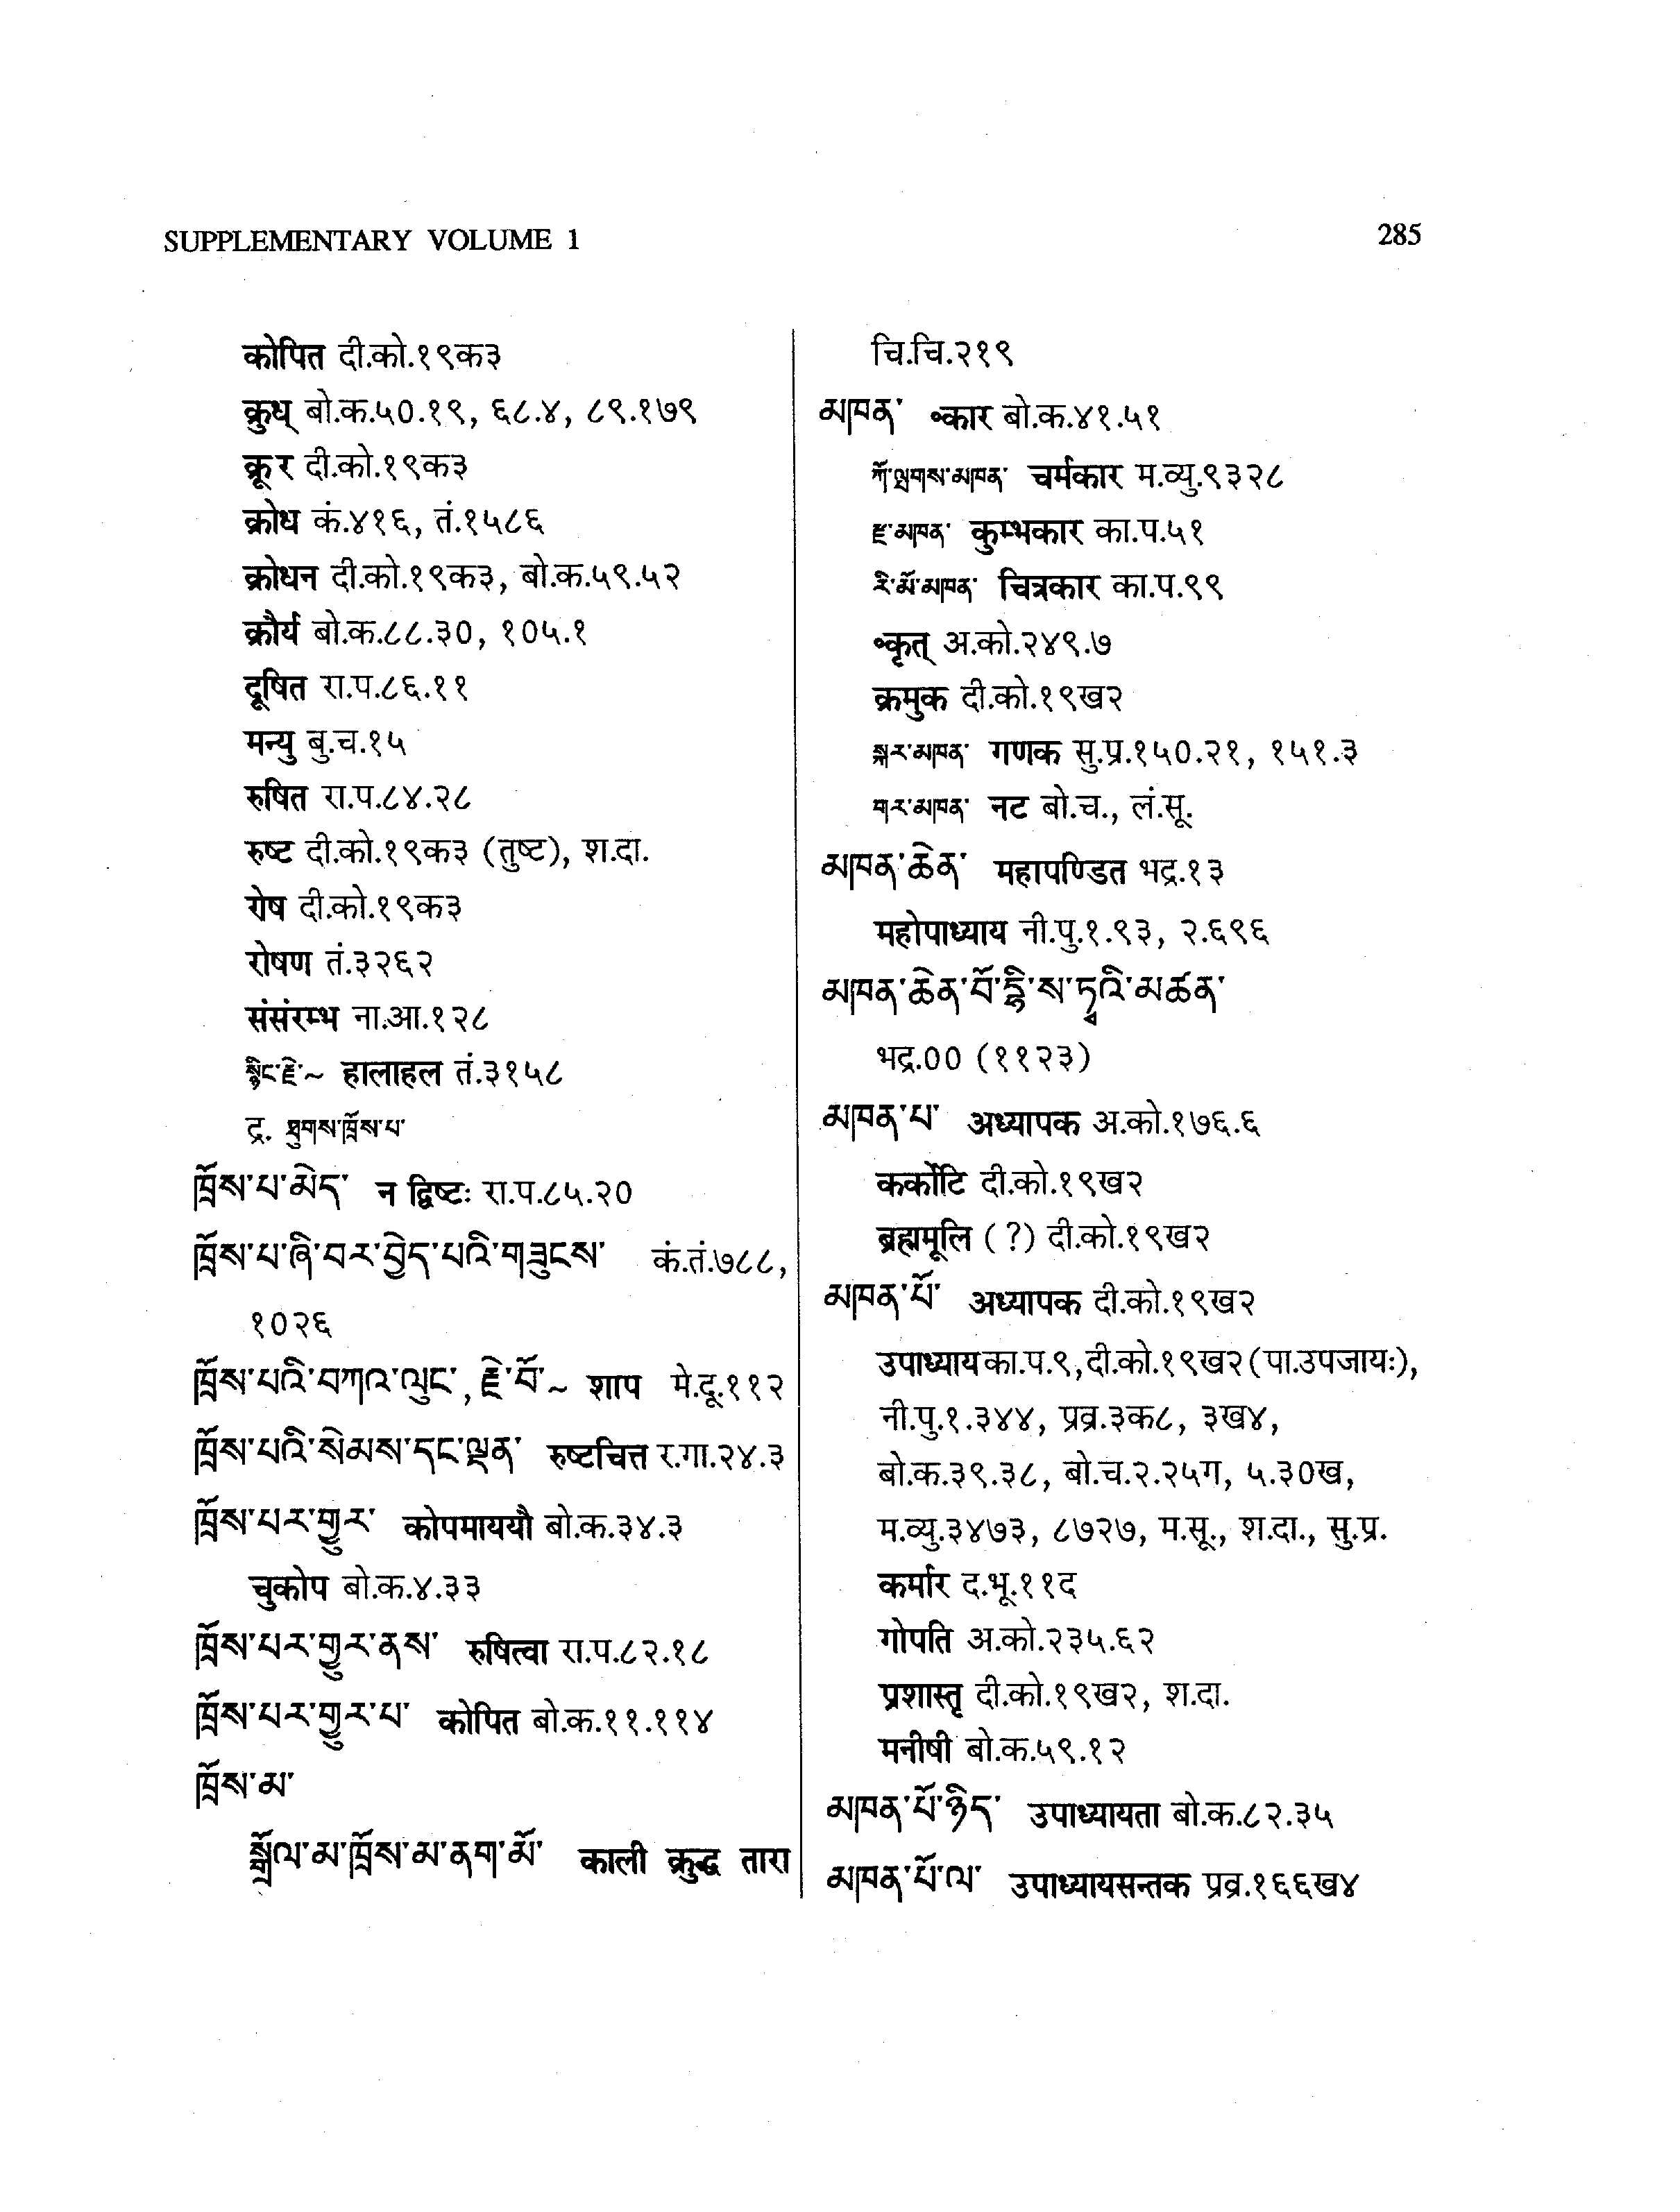 SUPPLEMENTARY VOLUME 1
285
कोपित दी.को.१९क३
क्रुध् बो.क.५०.१९, ६८.४, ८९.१७९
क्रूर दी.को.१९क३
क्रोध कं.४१६, तं.१५८६
क्रोधन दी.को.१९क३, बो.क.५९.५२
क्रौर्य बो.क.८८.३०, १०५.१
दूषित रा.प.८६.११
मन्यु बु.च.१५
रुषित रा.प.८४.२८
रुष्ट दी.को.१९क३ (तुष्ट), श.दा.
रोष दी.को.१९क३
रोषण तं.३२६२
संसंरम्भ ना.आ.१२८
སྙིང་རྗེ་~ हालाहल तं.३१५८
द्र. ཐུགས་ཁྲོས་པ་
ཁྲོས་པ་མེད་ न द्विष्टः रा.प.८५.२०
ཁྲོས་པ་ཞི་བར་བྱེད་པའི་གཟུངས་ कं.तं.७८८,
१०२६
ཁྲོས་པའི་བཀའ་ལུང་, རྗེ་བོ་~ शाप मे.दू.११२
ཁྲོས་པའི་སེམས་དང་ལྡན་ रुष्टचित्त र.गा.२४.३
ཁྲོས་པར་གྱུར་ कोपमाययौ बो.क.३४.३
चुकोप बो.क.४.३३
ཁྲོས་པར་གྱུར་ནས་ रुषित्वा रा.प.८२.१८
ཁྲོས་པར་གྱུར་པ་ कोपित बो.क.११.११४
ཁྲོས་མ་
སྒྲོལ་མ་ཁྲོས་མ་ནག་མོ་ काली क्रुद्ध तारा
चि.चि.२१९
མཁན་ ॰कार बो.क.४१.५१
ཀོ་ལྤགས་མཁན་ चर्मकार म.व्यु.९३२८
རྫ་མཁན་ कुम्भकार का.प.५१
རི་མོ་མཁན་ चित्रकार का.प.९९
॰कृत् अ.को.२४९.७
क्रमुक दी.को.१९ख२
སྐར་མཁན་ गणक सु.प्र.१५०.२१, १५१.३
གར་མཁན་ नट बो.च., लं.सू.
མཁན་ཆེན་ महापण्डित भद्र.१३
महोपाध्याय नी.पु.१.९३, २.६९६
མཁན་ཆེན་བོ་དྷི་ས་ཏྭའི་མཚན་
भद्र.०० (११२३)
མཁན་པ་ अध्यापक अ.को.१७६.६
कर्कोटि दी.को.१९ख२
ब्रह्ममूलि (?) दी.को.१९ख२
མཁན་པོ་ अध्यापक दी.को.१९ख२
उपाध्याय का.प.९, दी.को.१९ख२ (पा.उपजायः),
नी.पु.१.३४४, प्रव्र.३क८, ३ख४,
बो.क.३९.३८, बो.च.२.२५ग, ५.३०ख,
म.व्यु.३४७३, ८७२७, म.सू., श.दा., सु.प्र.
कर्मार द.भू.११द
गोपति अ.को.२३५.६२
प्रशास्तृ दी.को.१९ख२, श.दा.
मनीषी बो.क.५९.१२
མཁན་པོ་ཉིད་ उपाध्यायता बो.क.८२.३५
མཁན་པོ་ལ་ उपाध्यायसन्तक प्रव्र.१६६ख४